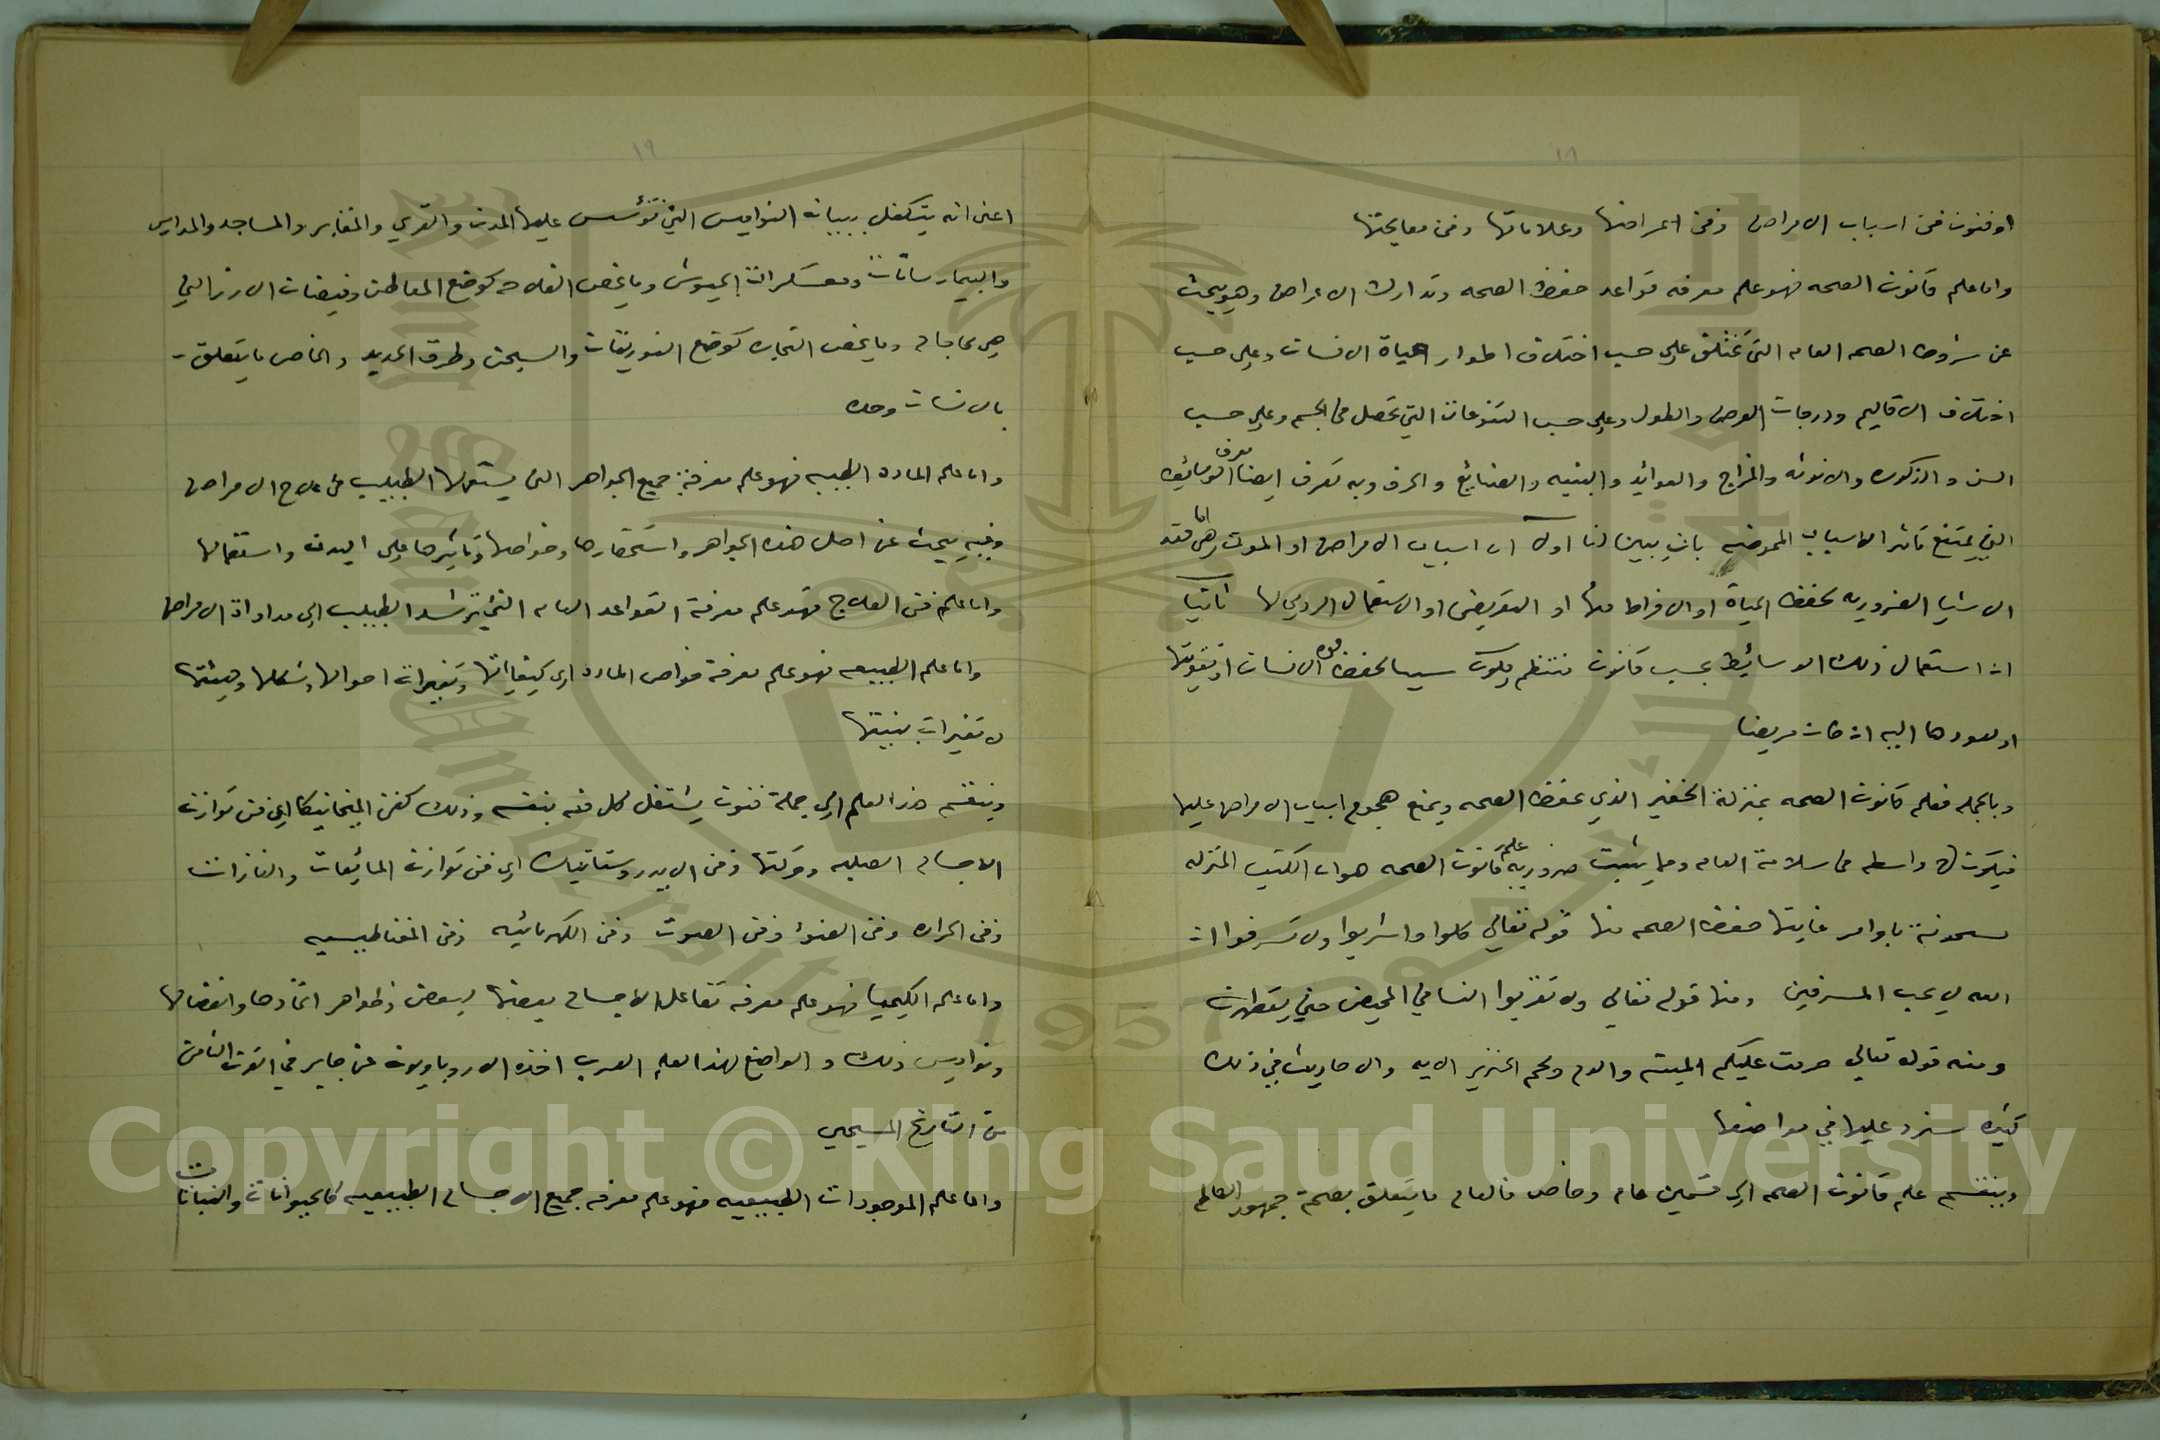 ١٨
او فنون فن اسباب الامراض وفن اعراضها وعلاماتها وفن معالجتها
واما علم قانون الصحه فهو علم معرفه قواعد حفظ الصحه وتدارك الاعراض وهو يبحث
عن شروط الصحه العامه التى تختلف على حسب اختلاف اطوار حياة الانسان وعلى حسب
اختلاف الاقاليم ودرجات العرض والطول وعلى حسب التنوعات التي تحصل فى الجسم وعلى حسب
السن والذكوره والانوثه والمزاج والعوائد والبنيه والصنايع والحرف وبه تعرف ايضا معرفة الوسائط
التي تمنع تاثير الاسباب الممرضه بان يبين لنا اولا ان اسباب الامراض او الموت اما هى فقد
الاشيا الضروريه لحفظ الحياة او الافراط منها او التعريض او الاستعمال الردي لها ثانيا
ان استعمال ذلك الوسائط بحسب قانون منتظم يكون سببا لحفظ قوه الانسان او تقويتها
او بعودها اليه ان كان مريضا
وبالجمله فعلم قانون الصحه بمنزلة الخفير الذي يحفظ الصحه ويمنع هجوم اسباب الامراض عليها
فيكون له واسطه فى سلامة العامه ومما يثبت ضروريه علم قانون الصحه هو ان الكتب المنزله
مشحونة باوامر غايتها حفظ الصحه منها قوله تعالي كلوا واشربوا ولا تسرفوا ان
الله لا يحب المسرفين ومنها قوله تعالي ولا تقربوا النسا في المحيض حتي يتطهرن
ومنه قوله تعالي حرمت عليكم الميته والدم ولحم الخنزير الايه والاحاديث في ذلك
كثيره سنرد عليها في مواضعها
وينقسم علم قانون الصحه الى قسمين عام وخاص فالعام ما يتعلق بصحة جمهور العالم
١٩
اعنى انه يتكفل ببيان النواميس التي تؤسس عليها المدن والقري والمقابر والمساجد والمدارس
والبيمارستانات ومعسكرات الجيوش وما يخص الفلاحه كوضع المعاطن وفيضات الارز التي
هي محاجاه وما يخص التجاره كوضع الفوريقات والسجن وطرق الحديد والخاص ما يتعلق
بالانسان وحده
واما علم الماده الطبيه فهو علم معرفة جميع الجواهر التى يستعملها الطبيب فى علاج الامراض
وفيه يبحث عن اصل هذه الجواهر واستحضارها وخواصها وتاثيرها على البدن واستعمالها
واما علم فن العلاج فهو علم معرفة القواعد العامه التي ترشد الطبيب الى مداواة الامراض
واما علم الطبيعه فهو علم معرفة خواص الماده اي كيفياتها وتغيرات احوالها وشكلها وهيئتها
لا تغيرات بنيتها
وينقسم هذا العلم الي جملة فنون يشتغل كل فن بنفسه وذلك كفن الميخانيكا اي فن توازن
الاجسام الصلبه وحركتها وفن الايدروستاتيك اي فن توازن المائيعات والغازات
وفن الحراره وفن الضوء وفن الصوت وفن الكهربائيه وفن المغناطيسيه
واما علم الكيميا فهو علم معرفه تفاعل الاجسام بعضها لبعض وظواهر اتحادها وانفصالها
ونواميس ذلك والواضع لهذا العلم العرب اخذه الاروباويون عن جابر في القرن الثامن
من التاريخ المسيحي
واما علم الموجودات الطبيعيه فهو علم معرفه جميع الاجسام الطبيعيه كالحيوانات والنباتات
Copyright © King Saud University
King Saud University
1957